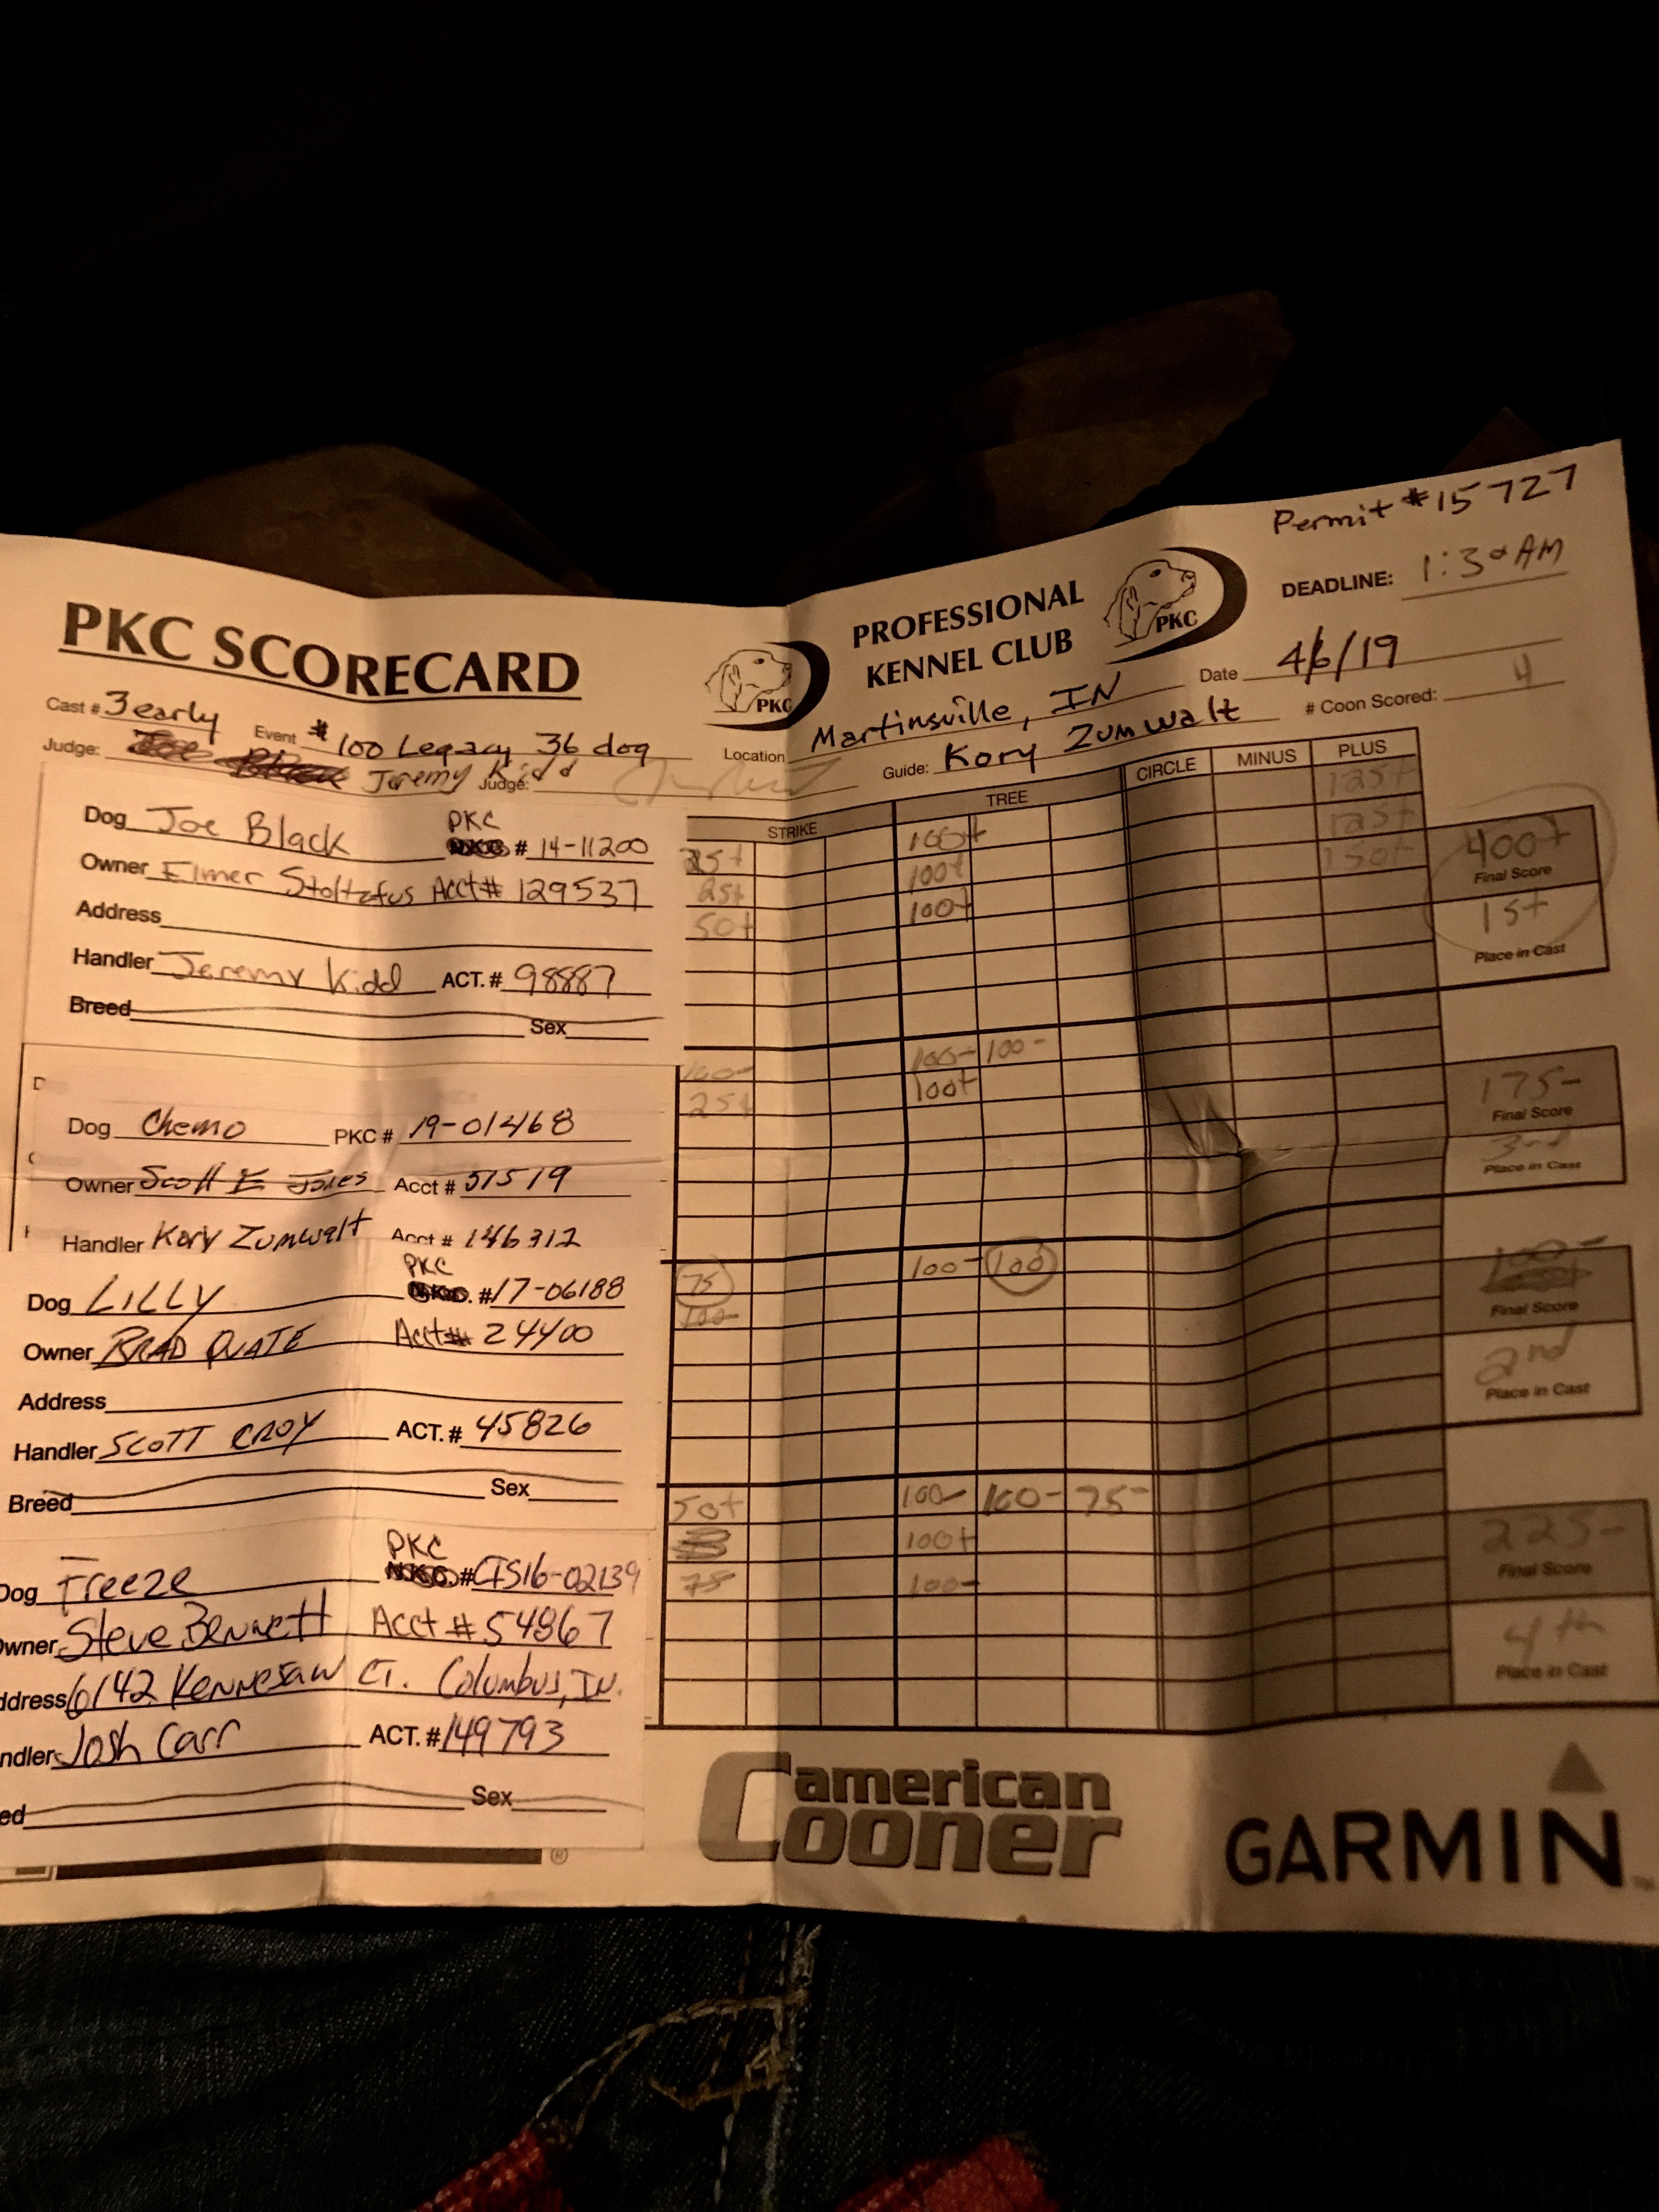 Permit #15727
DEADLINE: 1:30 AM
PKC SCORECARD
PROFESSIONAL
KENNEL CLUB
PKC
PKC
Date 4/6/19
Cast # 3 early Event # 100 Legacy 36 dog Location Martinsville, IN # Coon Scored: 4
Judge: Joe Black Jeremy Kidd Judge: Guide: Kory Zumwalt
STRIKE TREE CIRCLE MINUS PLUS
Dog Joe Black PKC # 14-11200
Owner Elmer Stoltzfus Acct # 129537
Address
Handler Jeremy Kidd ACT. # 98887
Breed Sex
25+ 100+ 125+
25+ 100+ 125+
50+ 100+ 150+
400+
Final Score
1st
Place in Cast
Dog Chemo PKC # 19-01468
Owner Scott E Jones Acct # 51519
Handler Kory Zumwalt Acct # 146312
100- 100- 100-
25+ 100+
175-
Final Score
3rd
Place in Cast
Dog LILLY PKC # 17-06188
Owner BRAD QUATE Acct # 24400
Address
Handler SCOTT CROY ACT. # 45826
Breed Sex
75 100- 100
100-
100-
Final Score
2nd
Place in Cast
Dog Freeze PKC # CTS16-02139
Owner Steve Bennett Acct # 54867
ddress 6142 Kennesaw CT. Columbus, IN.
ndler Josh Carr ACT. # 149793
ed Sex
50+ 100- 100- 75-
100+
75- 100-
225-
Final Score
4th
Place in Cast
american
Cooner
GARMIN